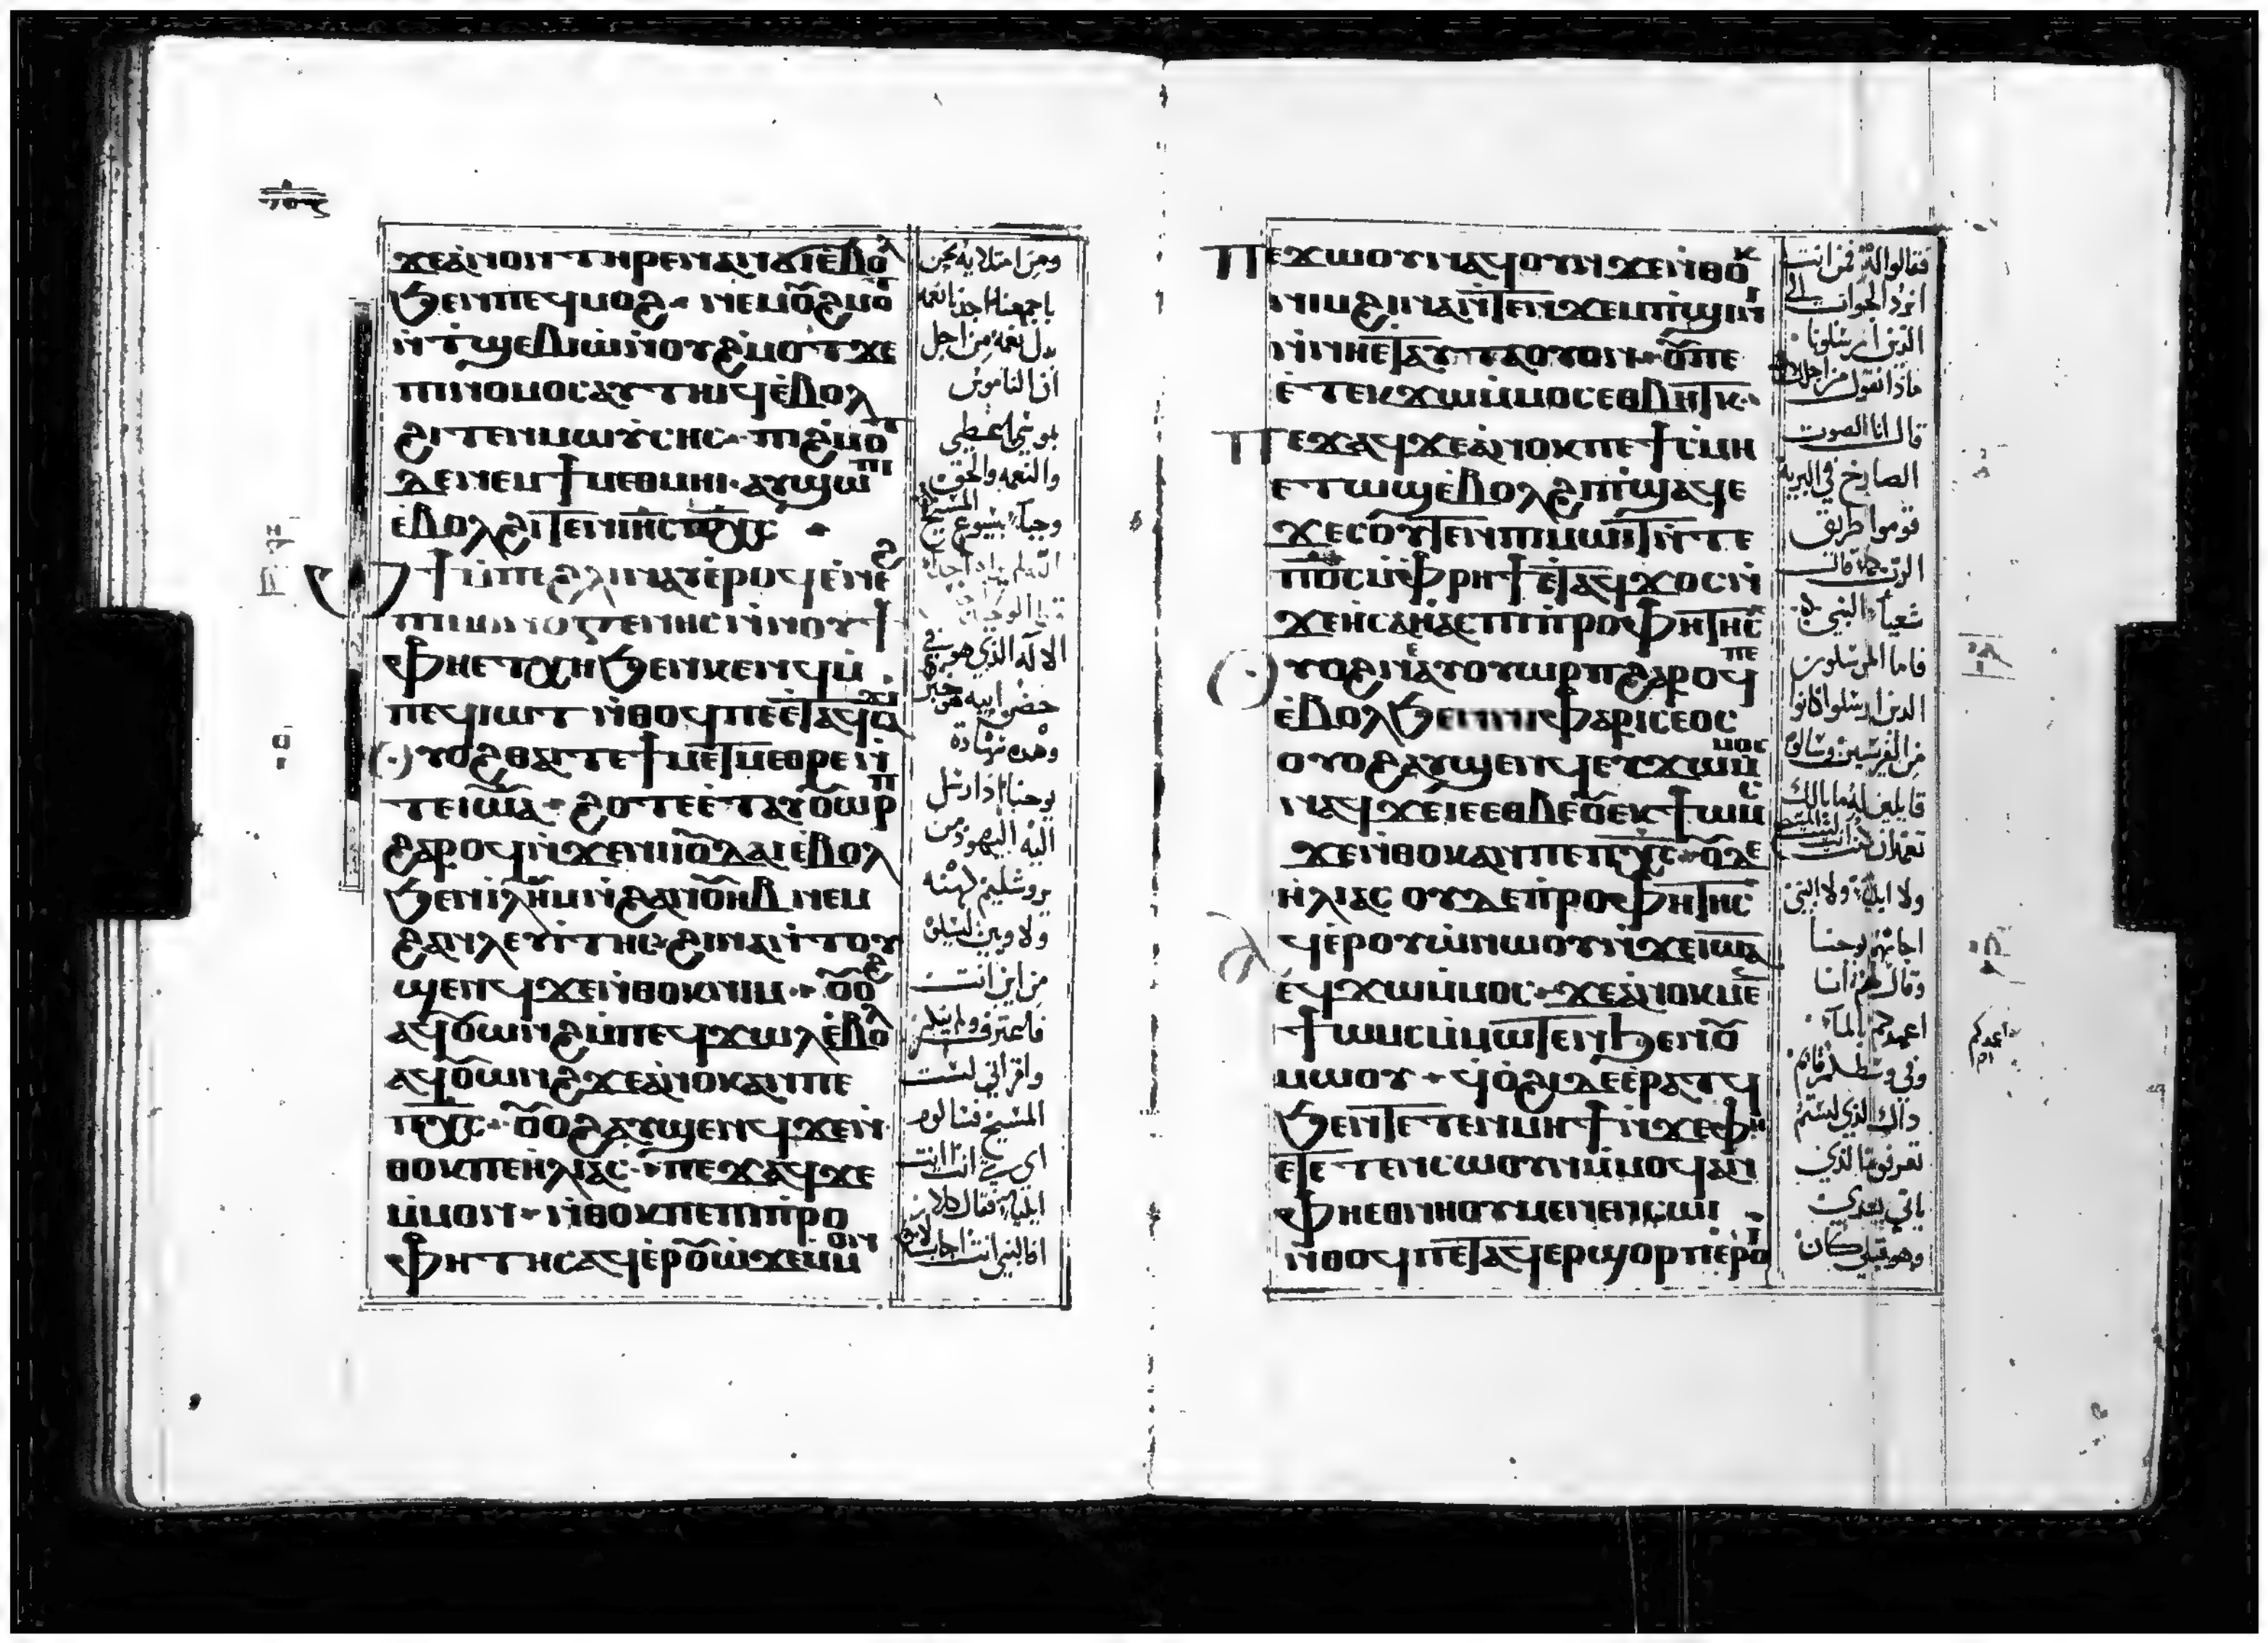 ϫⲉⲁⲛⲟⲛ ⲧⲏⲣⲉⲛⲁⲛϭⲓⲉⲃⲟⲗ
ϧⲉⲛⲡⲉϥⲙⲟϩ · ⲛⲉⲙⲟ̅ϩⲙⲟⲧ
ⲛ̇ⲧϣⲉⲃⲓⲱ̇ⲛ̇ⲟⲩϩ̇ⲙⲟⲧ ϫⲉ
ⲡⲓⲛⲟⲙⲟⲥⲁⲩⲧⲏⲓϥⲉ̇ⲃⲟⲗ
ϩⲓⲧⲉⲛⲙⲱⲩ̇ⲥⲏⲥ · ⲡⲓϩ̇ⲙⲟⲧ
ⲇⲉⲛⲉⲙϯⲙⲉⲑⲙⲏⲓ · ⲁⲩϣⲱⲡⲓ
ⲉ̇ⲃⲟⲗϩⲓⲧⲉⲛⲓⲏⲥ ⲡⲭⲥ
ⲫϯⲙ̇ⲡⲉϩⲗⲓⲛⲁⲩⲉ̇ⲣⲟϥⲉ̇ⲛⲉϩ
ⲡⲓⲙⲟⲛⲟⲅⲉⲛⲏⲥⲛ̇ⲛⲟⲩϯ
ⲫⲏⲉⲧⲭⲏϧⲉⲛⲕⲉⲛϥⲙ̇
ⲡⲉϥⲓⲱⲧ ⲛ̇ⲑⲟϥⲡⲉⲉ̇ⲧⲁϥⲥⲁϫⲓ
ⲟⲩⲟϩⲑⲁⲓⲧⲉϯⲙⲉⲧⲙⲉⲑⲣⲉ ⲛ̇
ⲧⲉⲓⲱ̅ⲁ · ϩⲟⲧⲉⲉ̇ⲧⲁⲩⲟ̅ⲱⲣⲡ
ϩⲁⲣⲟϥⲛ̇ϫⲉⲛⲓⲓⲟ̅ⲇⲁⲓⲉ̇ⲃⲟⲗ
ϧⲉⲛⲓⲗ̅ⲏ̅ⲙⲛ̇ϩⲁⲛⲟ̅ⲏⲃ ⲛⲉⲙ
ϩⲁⲛⲗⲉⲩⲓ̇ⲧⲏⲥ·ϩⲓⲛⲁⲛ̇ⲧⲟⲩ
ϣⲉⲛϥϫⲉⲛ̇ⲑⲟⲕⲛⲓⲙ · ⲟ̅ⲟϩ
ⲁϥⲟ̅ⲱⲛϩⲙ̇ⲡⲉϥϫⲱⲗⲉ̇ⲃⲟⲗ
ⲁϥⲟ̅ⲱⲛϩϫⲉⲁⲛⲟⲕⲁⲛⲡⲉ
ⲡⲭ̅ⲥ̅ · ⲟ̅ⲟϩⲁⲩϣⲉⲛϥϫⲉⲛ̇
ⲑⲟⲕⲡⲉⲏ̇ⲗⲓⲁⲥ · ⲡⲉϫⲁϥϫⲉ
ⲙ̇ⲙⲟⲛ · ⲛ̇ⲑⲟⲕⲡⲉⲡⲓⲡ̇ⲣⲟ
ⲫⲏⲧⲏⲥⲁϥⲉ̇ⲣⲟ̅ⲱ̇ϫⲉⲙ̇ⲙⲟⲛ
ومن امتلايه نحن
باجمعنا اخذنا نعمه
بدل نعمه من اجل
ان الناموس
بموسى اعطي
والنعمه والحق
وجبا بيسوع المسيح
الاله الذي هو في
حضن ابيه هو خبر
وهذه شهادة
يوحنا اذ ارسل
اليه اليهود من
يروشليم كهنه
ولاويين ليسلوه
من اين انت
فاعترف ولم ينكر
واقر اني لست
المسيح فسالوه
انت
ايليا فقال كلا
افالنبي انت اجاب لا
ⲡⲉϫⲱⲟⲩⲛⲁϥⲟⲩⲛ ϫⲉⲛ̇ⲑⲟⲕ
ⲛⲓⲙϩⲓⲛⲁⲛ̇ⲧⲉⲛϫⲉⲙⲡ̇ϣⲓⲛⲓ
ⲛ̇ⲛⲏⲉ̇ⲧⲁⲩⲧⲁⲟⲩⲟⲛ · ⲟ̅ⲡⲉ
ⲉ̇ⲧⲉⲕϫⲱⲙ̇ⲙⲟⲥⲉⲑⲃⲏⲧⲕ
ⲡⲉϫⲁϥϫⲉⲁⲛⲟⲕⲡⲉϯⲥ̇ⲙⲏ
ⲉⲧⲱϣⲉ̇ⲃⲟⲗϩⲓⲡ̇ϣⲁϥⲉ
ϫⲉⲥⲟ̅ⲩⲧⲉⲛⲡⲓⲙⲱⲓⲧⲛ̇ⲧⲉ
ⲡⲟ̅ⲥ̅ⲙ̇ⲫⲣⲏϯⲉ̇ⲧⲁϥϫⲟⲥⲛ̇
ϫⲉⲏ̇ⲥⲁⲏ̇ⲁⲥⲡⲓⲡ̇ⲣⲟⲫⲏⲧⲏⲥ
ⲟⲩⲟϩⲛⲉⲁⲩⲟⲩⲱⲣⲡϩⲁⲣⲟϥⲡⲉ
ⲉ̇ⲃⲟⲗϧⲉⲛⲛⲓⲫⲁⲣⲓⲥⲉⲟⲥ
ⲟⲩⲟϩⲁⲩϣⲉⲛϥⲉⲩϫⲱⲙ̇ⲙⲟⲥ
ⲛⲁϥϫⲉⲓⲉⲉⲑⲃⲉⲟ̅ⲉⲕϯⲱⲙⲥ
ϫⲉⲛ̇ⲑⲟⲕⲁⲛⲡⲉⲡⲭ̅ⲥ̅ · ⲟ̅ⲇⲉ
ⲏ̇ⲗⲓⲁⲥ ⲟⲩⲇⲉⲡ̇ⲣⲟⲫⲏⲧⲏⲥ
ⲁϥⲉ̇ⲣⲟⲩⲱ̇ⲛⲱⲟⲩⲛ̇ϫⲉⲓⲱ̅ⲁ
ⲉ̇ϥϫⲱⲙ̇ⲙⲟⲥ · ϫⲉⲁⲛⲟⲕⲙⲉⲛ
ϯⲱⲙⲥⲙ̇ⲙⲱⲧⲉⲛϧⲉⲛⲟ̅
ⲙⲱⲟⲩ · ϥⲟ̇ϩⲓⲇⲉⲉ̇ⲣⲁⲧϥ
ϧⲉⲛⲧⲉⲧⲉⲛⲙⲏϯⲛ̇ϫⲉⲫⲏ
ⲉ̇ⲧⲉⲧⲉⲛⲥⲱⲟⲩⲛⲙ̇ⲙⲟϥⲁⲛ
ⲫⲏⲉⲑⲛⲏⲟⲩⲙⲉⲛⲉⲛⲥⲱⲓ
ⲛ̇ⲑⲟϥⲡⲉⲧⲁϥⲉⲣϣⲟⲣⲡⲉ̇ⲣⲟⲓ
فقالوا له فمن انت
لنرد الجواب الى
الذين ارسلونا
ماذا تقول من اجلك
قال انا الصوت
الصارخ في البرية
قوموا طريق
الرب كما قال
شعيا النبي
فاما المرسلون
الذين ارسلوا كانوا
من الفريسين وسالوه
قايلين له ما بالك
تعمد ان كنت لست المسيح
ولا ايليا ولا النبي
اجابهم يوحنا
وقال لهم انا
اعمدكم بالماء
وفي وسطكم قايم
ذاك الذي لستم
تعرفونه الذي
ياتي بعدي
وهو قبلي كان